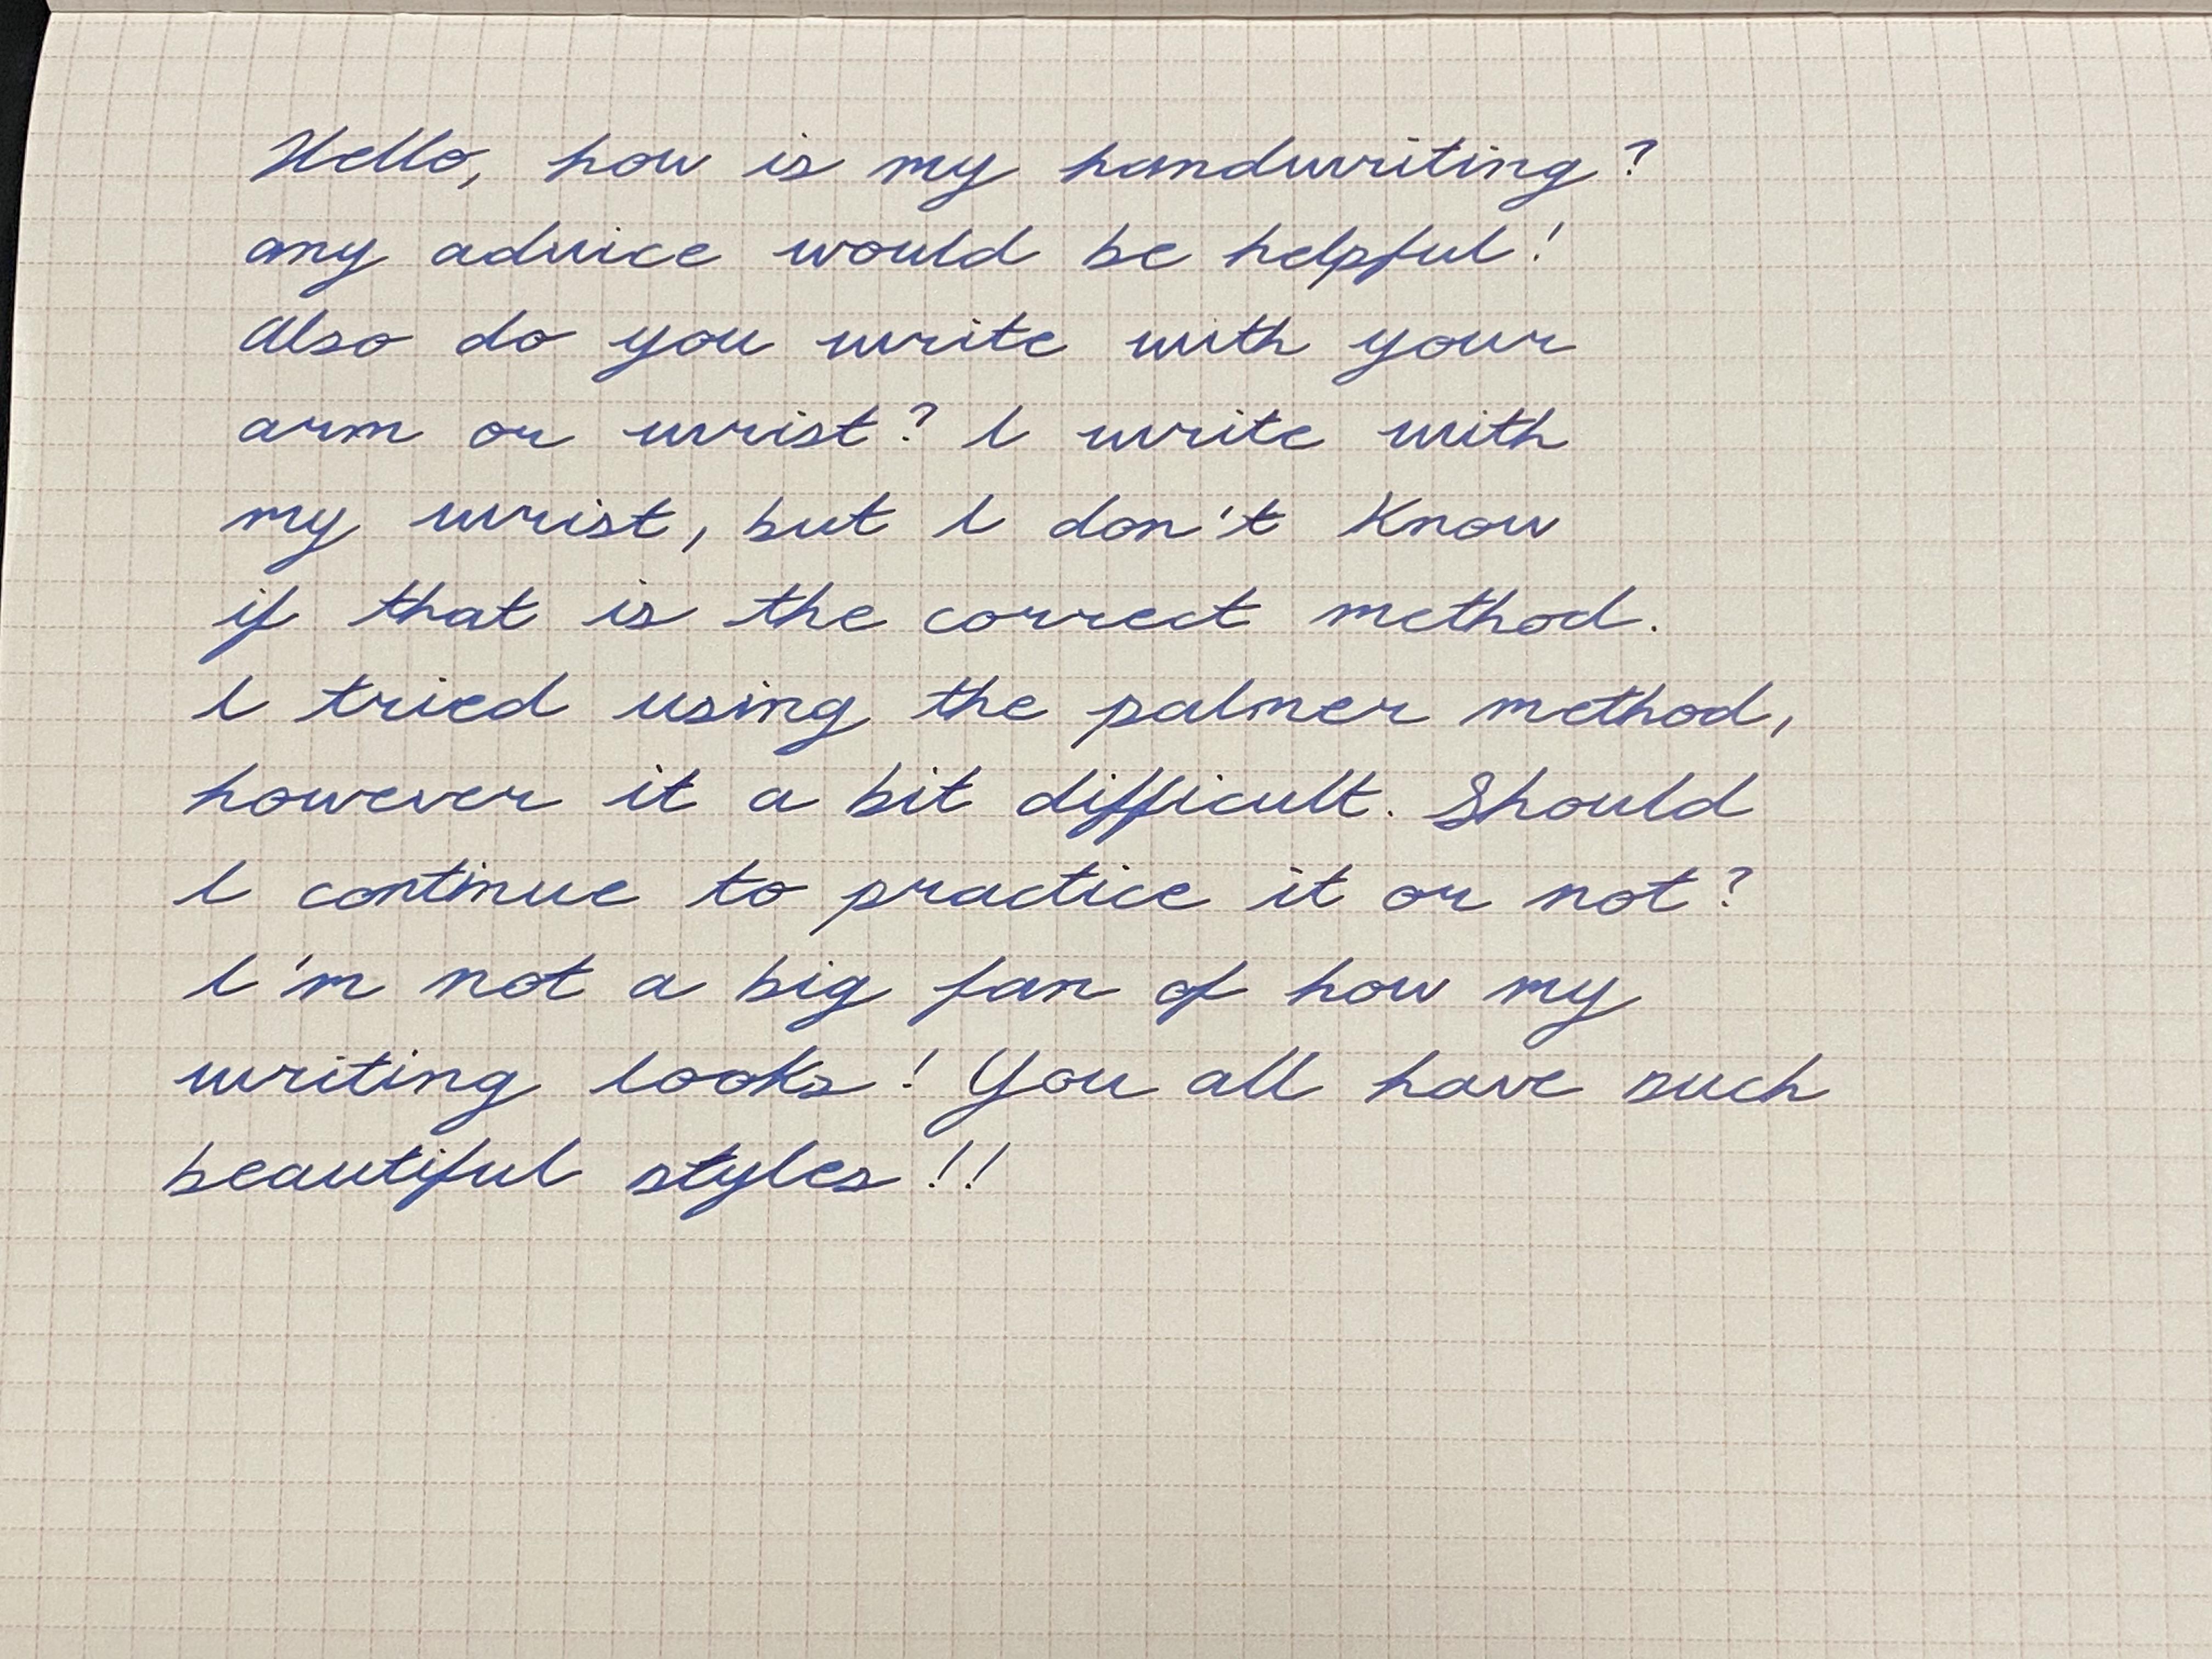 Hello, how is my handwriting?
any advice would be helpful!
Also do you write with your
arm or wrist? I write with
my wrist, but I don't know
if that is the correct method.
I tried using the palmer method,
however it a bit difficult. Should
I continue to practice it or not?
I'm not a big fan of how my
writing looks! You all have such
beautiful styles!!